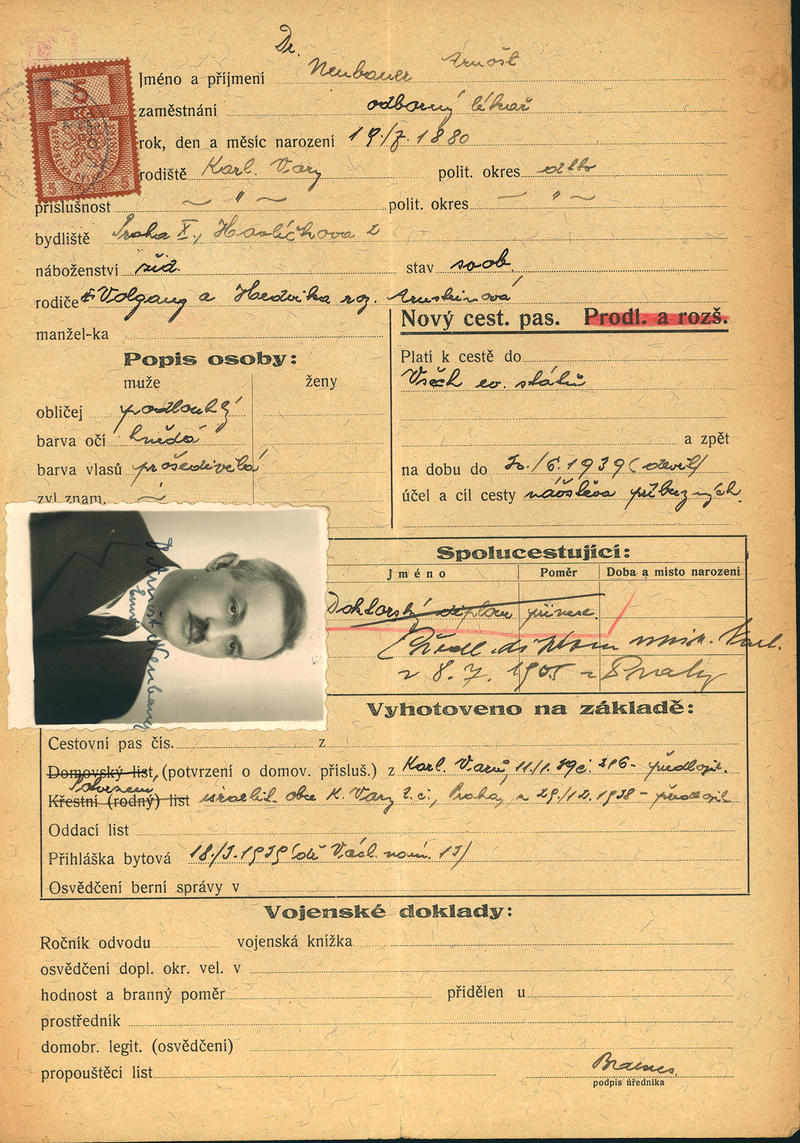 Dr.
Jméno a příjmení Neubauer Arnošt
KOLEK
zaměstnání odborný lékař
rok, den a měsíc narození 19./7. 1880
rodiště Karl. Vary polit. okres
5
příslušnost ~ " ~ polit. okres ~ " ~
bydliště Praha X., Havlíčkova 2
náboženství žid. stav svob.
rodiče a Hedvika roz.
manžel-ka
Nový cest. pas. Prodl. a rozš.
Popis osoby:
muže ženy
Platí k cestě do
Všech ev. států
obličej podlouhlý
barva očí hnědá
a zpět
barva vlasů prošedivělá
na dobu do 30./6. 1939
zvl. znam. ~
účel a cíl cesty návštěva příbuzných
Spolucestující:
Jméno Poměr Doba a místo narození
Doktorský diplom přinese.
Předl. diplom univ. Karl.
z 8. 7. 1905 v Praze
Arnošt Neubauer
Vyhotoveno na základě:
Cestovní pas čís. z
Domovský list, (potvrzení o domov. přísluš.) z Karl. Varů, 11./1. 39 č. 316 - předložil.
Potvrzení
Křestní (rodný) list israelit. obce K. Vary t. č., Praha, z 29./12. 1938 - předložil
Oddací list
Přihláška bytová 18./I. 1939 Václ. nám.
Osvědčení berní správy v
Vojenské doklady:
Ročník odvodu vojenská knížka
osvědčení dopl. okr. vel. v
hodnost a branný poměr přidělen u
prostředník
domobr. legit. (osvědčení)
propouštěcí list
podpis úředníka